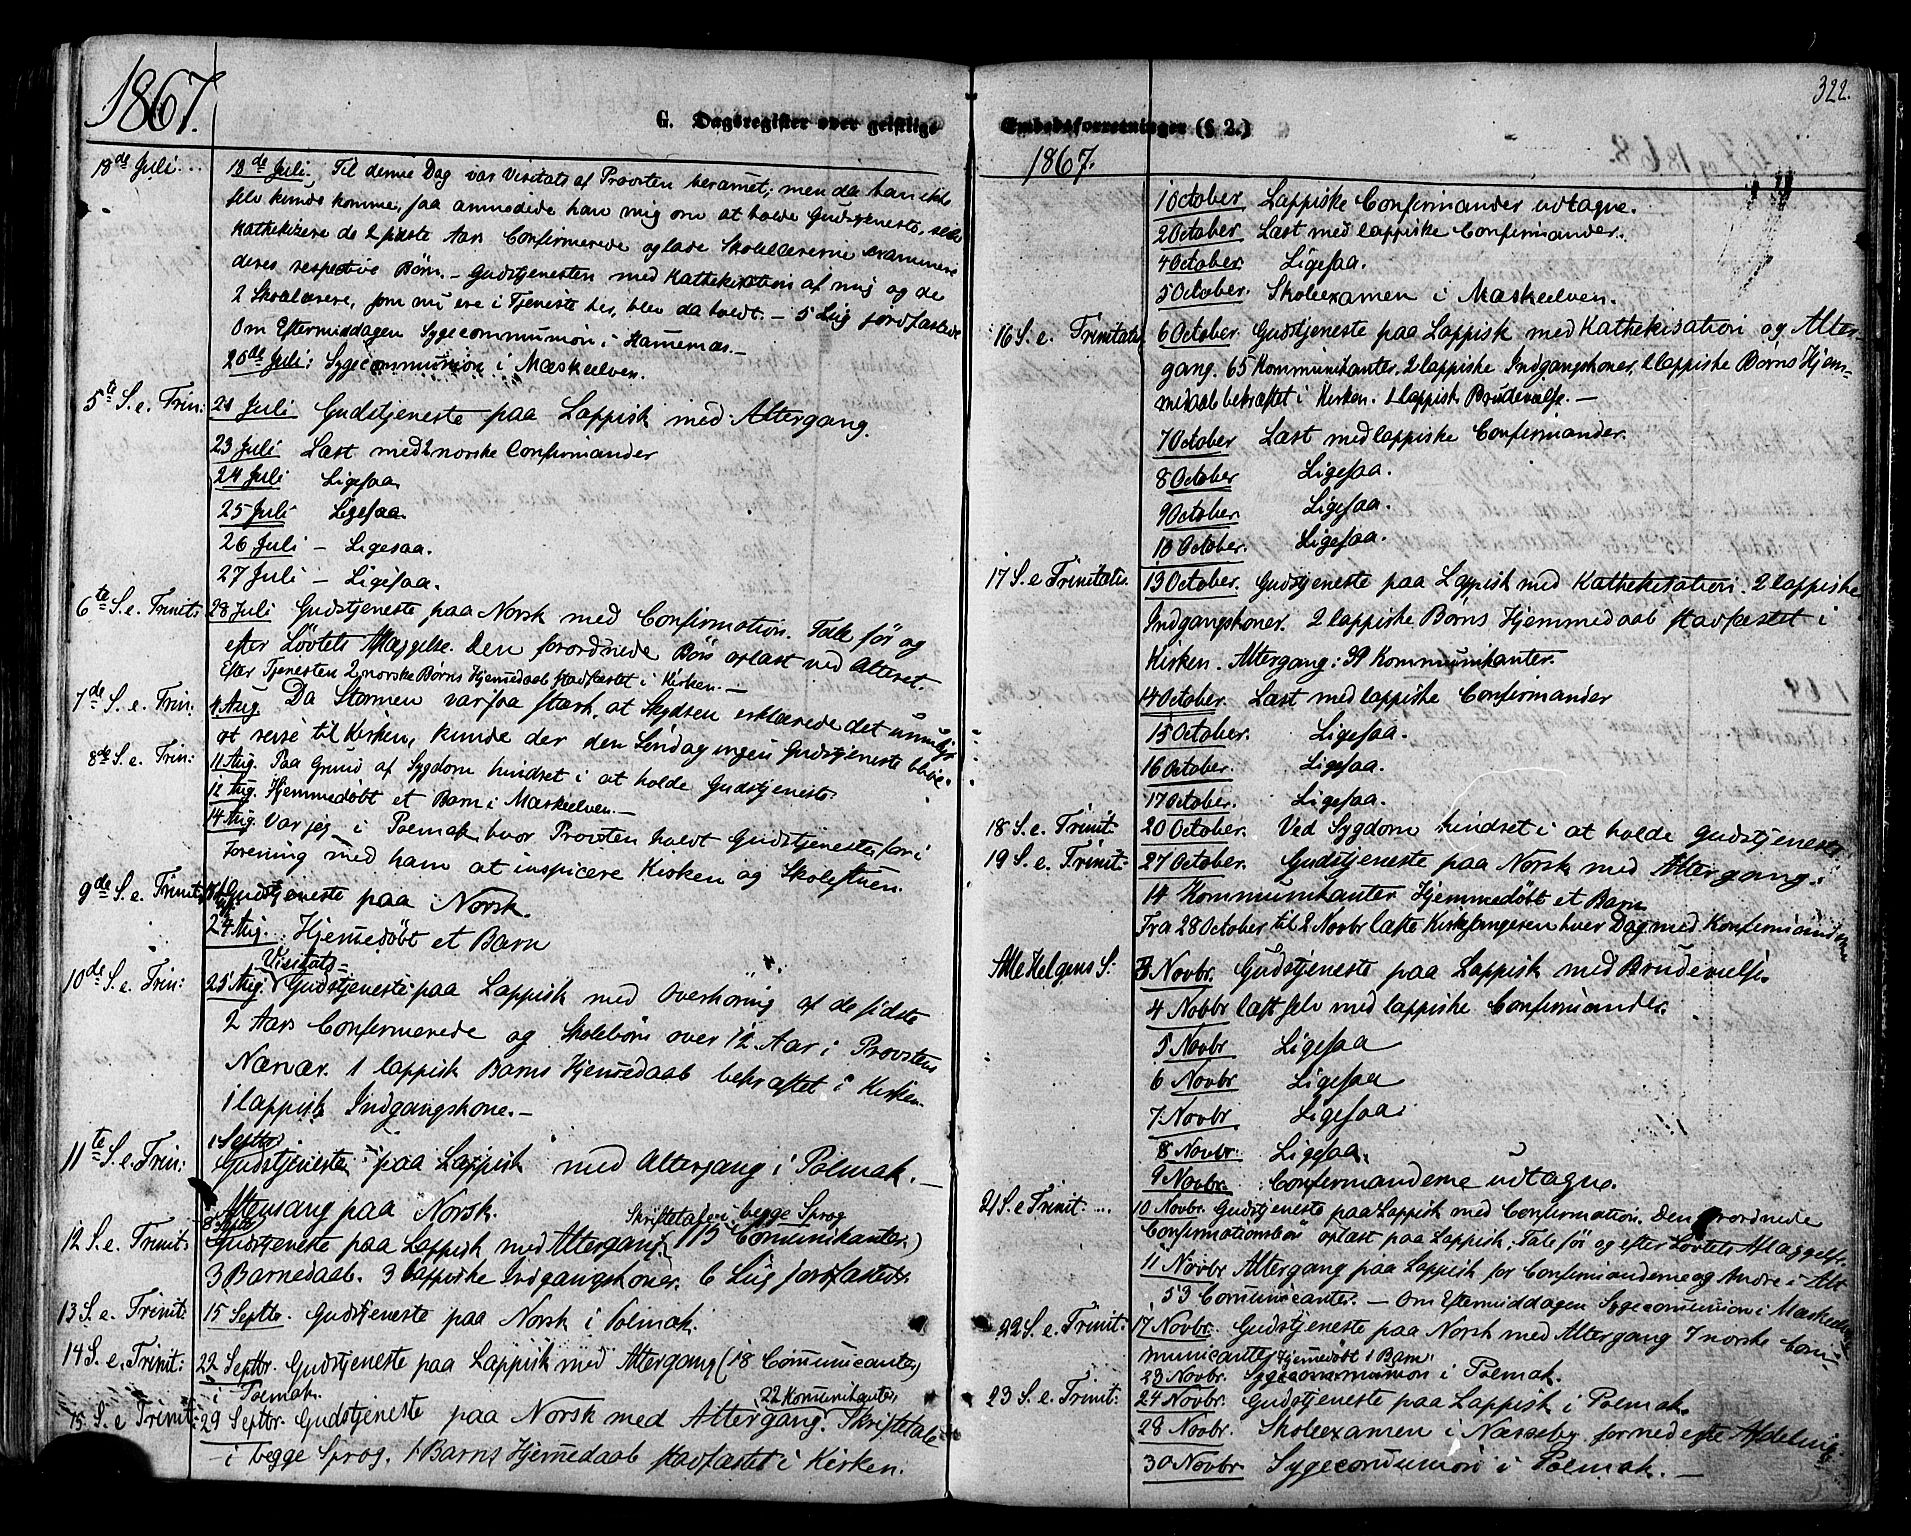 1867.
G. Dagsregister over geistlige
18de Juli... 18de Juli. Til denne Dag var Visitats af Provsten beramet; men da han ikke
selv kunde komme, saa anmodede han mig om at holde Gudstjeneste, selv
kathekizere de 2 sidste Aars Confirmerede og lade Skolelærerne examinere
deres respective Børn. – Gudstjenesten med Kathekisation af mig og de
2 Skolelærere, som nu ere i Tjeneste her, blev da holdt. – 5 Lig jordfæstede
Om Eftermiddagen Sygecommunion i –
20de Juli: Sygecommunion i Mæskeelven.
5te S. e. Trin: 21 Juli Gudstjeneste paa Lappisk med Altergang.
23 Juli Læst med 2 norske Confirmander
24 Juli Ligesaa
25 Juli Ligesaa.
26 Juli – Ligesaa.
27 Juli – Ligesaa.
6te S. e. Trinit: 28 Juli Gudstjeneste paa Norsk med Confirmation. Tale før og
efter Løvtets Aflæggelse. Den forordnede Bøn oplæst ved Alteret.
Efter Tjenesten 2 norske Børns Hjemmedaab stadfæstet i Kirken. –
7de S. e. Trin: 4 Aug. Da Stormen var saa stærk, at Skydsen erklærede det umuligt
at reise til Kirken, kunde der den Søndag ingen Gudstjeneste blive.
8de S. e. Trin: 11 Aug. Paa Grund af Sygdom hindret i at holde Gudstjeneste
12 Aug. Hjemmedøbt et Barn i Mæskeelven. –
14 Aug. Var jeg i Polmak, hvor Provsten holdt Gudstjeneste, for i
Forening med ham at inspicere Kirken og Skolestuen.
9de S. e. Trinit: 18 Aug. Gudstjeneste paa Norsk.
24 Aug. Hjemmedøbt et Barn
Visitats=
10de S. e. Trin: 25 Aug. Gudstjeneste paa Lappisk med Overhøring af de sidste
2 Aars Confirmerede og Skolebørn over 12 Aar i Provstens
Nærvær. 1 lappisk Barns Hjemmedaab bekræftet i Kirken.
1 lappisk Indgangskone. –
1 Septbr
11te S. e. Trin: Gudstjeneste paa Lappisk med Altergang i Polmak. –
Aftensang paa Norsk. Skriftetale i begge Sprog
8 Septbr
12 S. e. Trinit: Gudstjeneste paa Lappisk med Altergang. (115 Comunikanter.)
3 Barnedaab. 3 lappiske Indgangskoner. 6 Lig jordfæstede.
13 S. e. Trinit: 15 Septbr. Gudstjeneste paa Norsk i Polmak.
14 S. e. Trinit: 22 Septbr. Gudstjeneste paa Lappisk med Altergang (18 Communicanter)
i Polmak. 22 Komunikanter
15 S. e Trinit: 29 Septbr. Gudstjeneste paa Norsk med Altergang. Skriftetale
i begge Sprog. 1 Barns Hjemmedaab stadfæstet i Kirken.
322.
Embedsforretninger (§ 2.)
1867.
1 October. Lappiske Confirmander udtagne.
2 October. Læst med lappiske Confirmander.
4 October. Ligesaa.
5 October. Skoleexamen i Mæskeelven.
16 S. e. Trinitatis 6 October. Gudstjeneste paa Lappisk med Kathekisation og Alter-
gang. 65 Kommunikanter. 2 lappiske Indgangskoner, 2 lappiske Børns Hjem-
medaab bekræftet i Kirken. 1 lappisk Brudevielse. –
7 October Læst med lappiske Confirmander.
8 October Ligesaa.
9 October. Ligesaa.
10 October. Ligesaa.
17 S. e Trinitatis. 13 October. Gudstjeneste paa Lappisk med Kathekisation. 2 lappiske
Indgangskoner. 2 lappiske Børns Hjemmedaab stadfæstet i
Kirken. Altergang: 39 Kommunikanter.
14 October. Læst med lappiske Confirmander
15 October. Ligesaa.
16 October. Ligesaa.
17 October. Ligesaa.
18 S. e. Trinit: 20 October. Ved Sygdom hindret i at holde Gudstjeneste
19 S. e. Trinit: 27 October. Gudstjeneste paa Norsk med Altergang.
14 Kommunikanter Hjemmedøbt et Barn
Fra 28 October til 2 Novbr læste Kirkesangeren hver Dag med Konfirmanderne
Alle Helgens S: 3 Novbr. Gudstjeneste paa Lappisk med Brudevielse.
4 Novbr læst selv med lappiske Confirmander.
5 Novbr Ligesaa
6 Novbr Ligesaa
7 Novbr Ligesaa.
8 Novbr: Ligesaa.
9 Novbr. Confirmanderne udtagne.
21 S. e Trinit: ... 10 Novbr. Gudstjeneste paa Lappisk med Confirmation. Den forordnede
Confirmationsbøn oplæst paa Lappisk. Tale før og efter Løvtets Aflæggelse.
11 Novbr Altergang paa Lappisk for Confirmanderne og Andre i Alt
53 Comunicanter. – Om Eftermiddagen Sygecomunion i Mæskeelven
22 S. e. Trinit: 17 Novbr. Gudstjeneste paa Norsk med Altergang 7 norske Com-
municanter, Hjemmedøbt 1 Barn.
23 Novbr. Sygecommunion i Polmak.
23 S. e. Trinit: 24 Novbr. Gudstjeneste paa Lappisk i Polmak.
28 Novbr. Skoleexamen i Næsseby for nederste Afdeling.
30 Novbr. Sygecommunion i Polmak. –